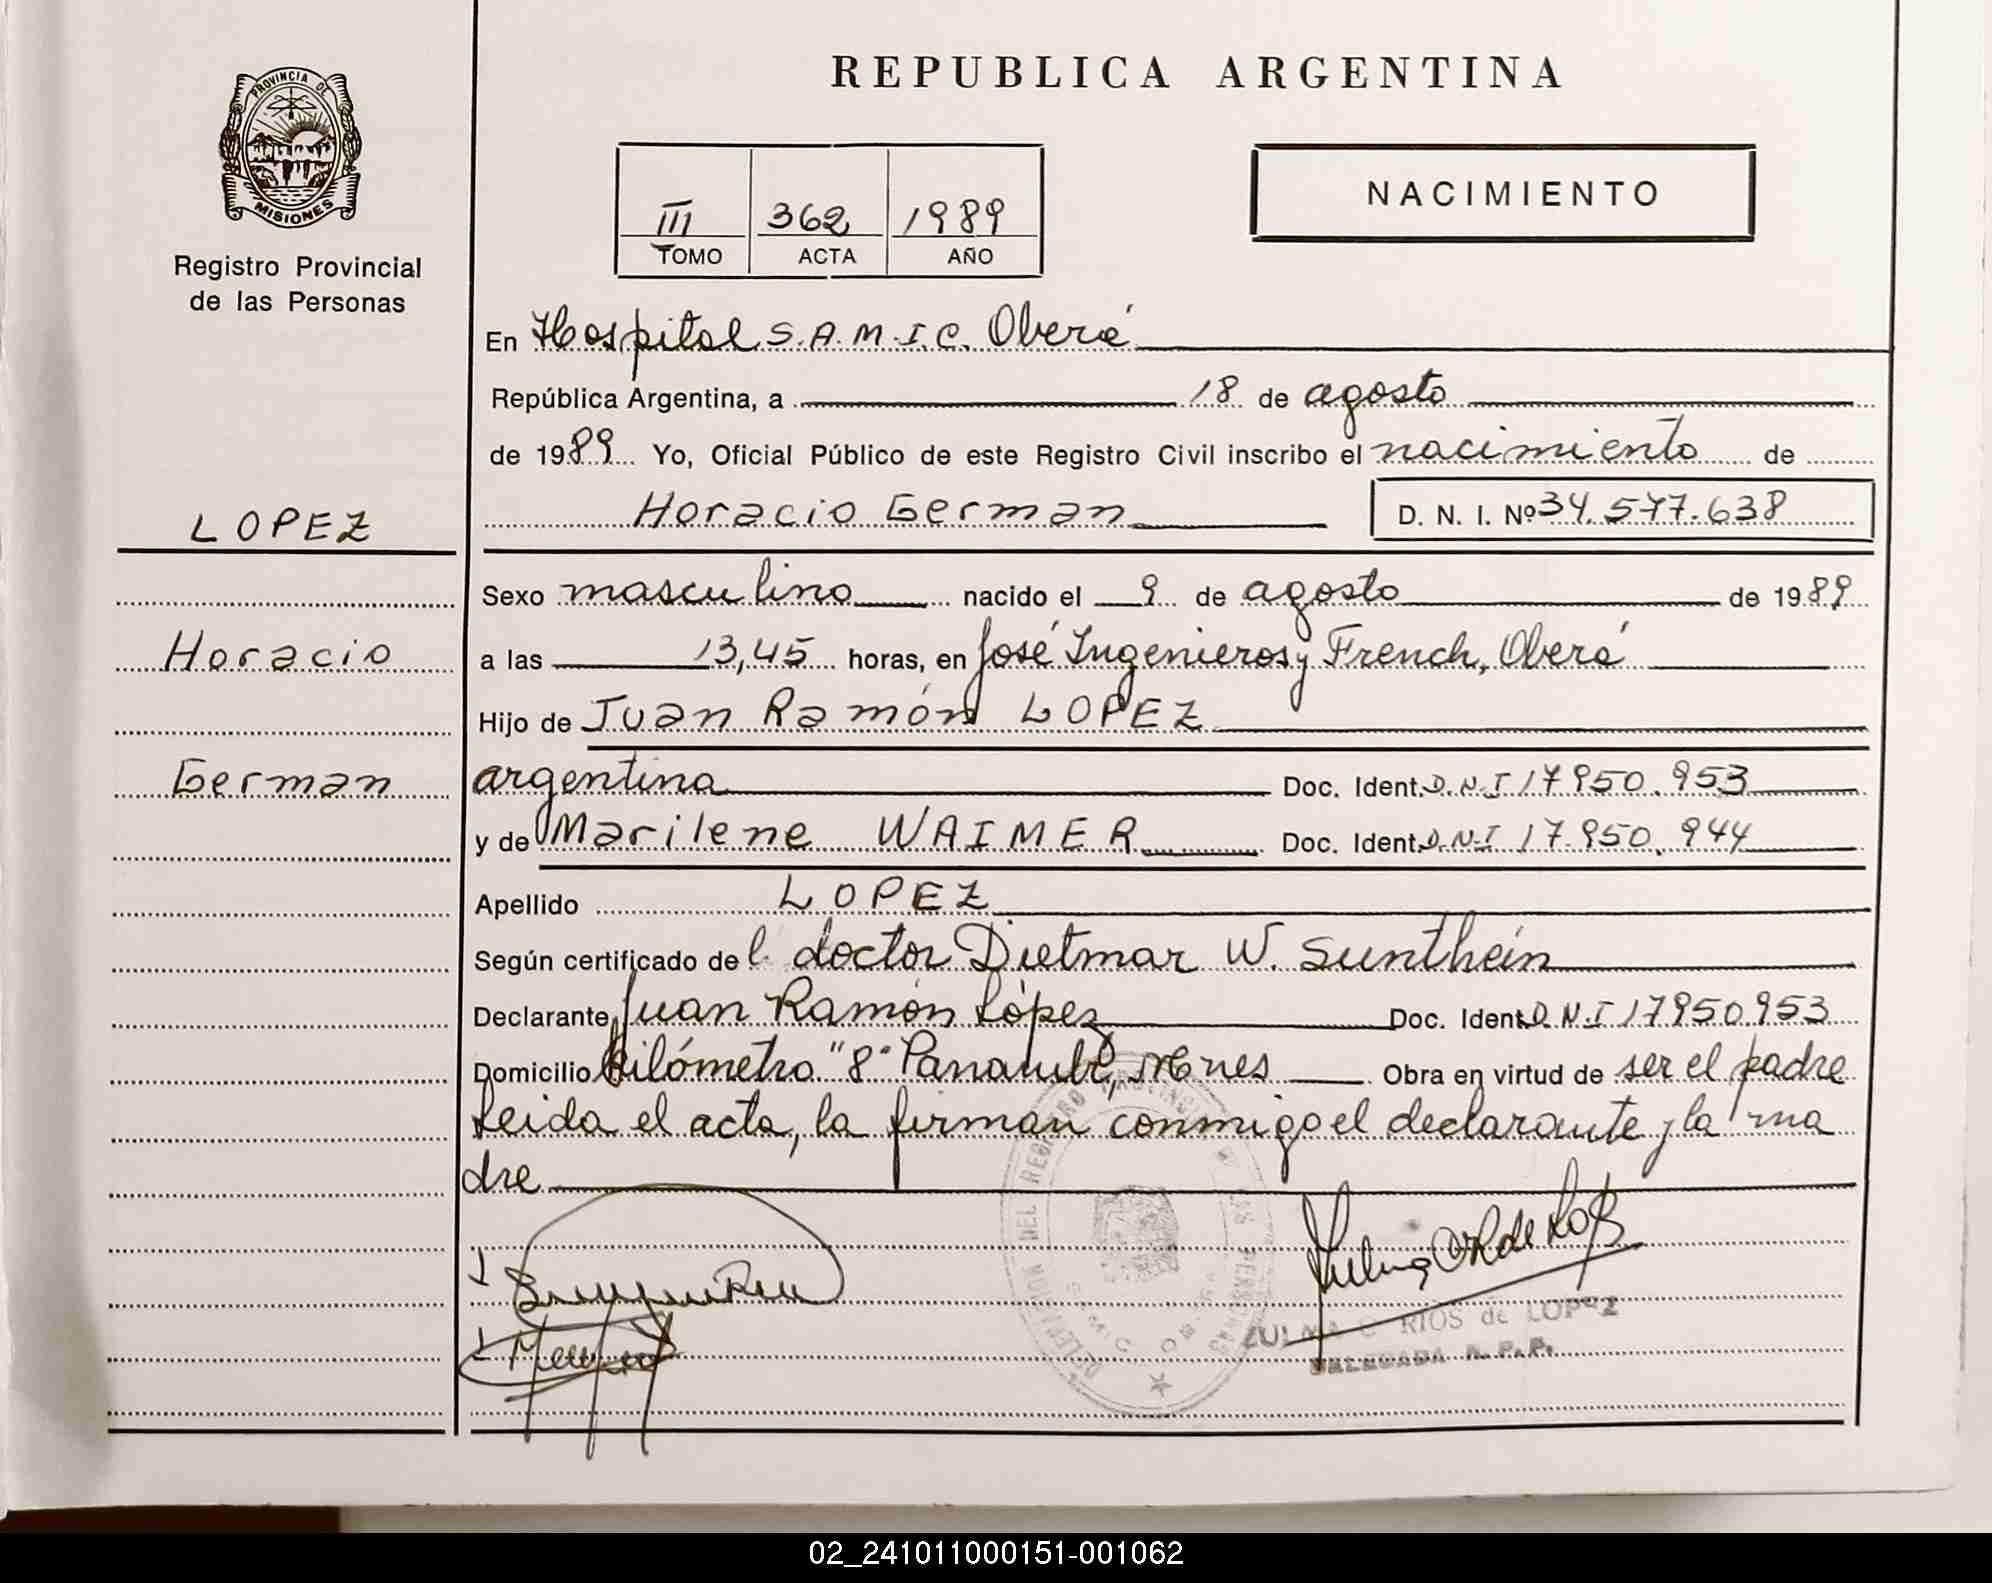 PROVINCIA DE
MISIONES
Registro Provincial
de las Personas
LOPEZ
Horacio
German
REPUBLICA ARGENTINA
III 362 1989
TOMO ACTA AÑO
NACIMIENTO
En Hospital S.A.M.I.C. Oberá
República Argentina, a 18 de agosto
de 1989 Yo, Oficial Público de este Registro Civil inscribo el nacimiento de
Horacio German D. N. I. Nº 34.577.638
Sexo masculino nacido el 9 de agosto de 1989
a las 13,45 horas, en José Ingenieros y French, Oberá
Hijo de Juan Ramón LOPEZ
argentina Doc. Ident. D.N.I 17950.953
y de Marilene WAIMER Doc. Ident. D.N.I 17.950.944
Apellido LOPEZ
Según certificado del doctor Dietmar W. Sunthein
Declarante Juan Ramón López Doc. Ident. D.N.I 17950953
Domicilio kilómetro "8" Panambí, Mnes Obra en virtud de ser el padre
Leida el acta, la firman conmigo el declarante y la ma
dre
ZULMA C RIOS de LOPEZ
DELEGADA R.P.P.
02_241011000151-001062